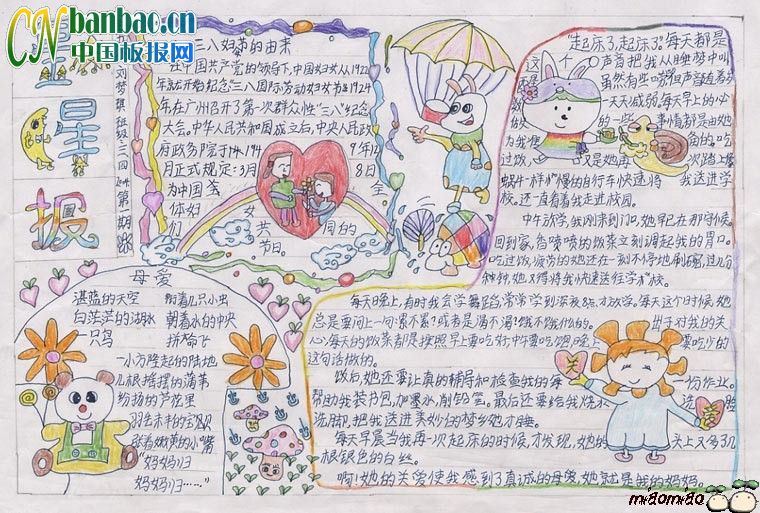 CN banbao.cn
中国板报网
星星报
刘梦琪
第一期
三八妇节的由来
在中国共产党的领导下,中国妇女从1922
年就开始纪念"三八国际劳动妇女节"1924
年在广州召开了第一次群众性"三八"纪念
大会。中华人民共和国成立后,中央人民政
府政务院于1949年12
月正式规定:3月8日
为中国 全
体妇女共同的
们 节日。
母爱
湛蓝的天空
白茫茫的湖水
一只鸟
衔着几只小虫
朝着水的中央
拼命飞
一小方隆起的陆地
几根摇摆的蒲苇
纷扬的芦花里
张着嫩黄的小嘴
"妈妈归
妈妈归……"
"起床了,起床了。"每天都是
这个声音把我从睡梦中叫
一天天减弱,每天早上的
的一些事情都是由她
为我 的。吃
过饭, 又是她再次踏上像
蜗牛一样慢的自行车快速将我送进学
校。还一直看着我走进校园。
中午放学,我刚来到门口,她早已在那守候。
回到家,香喷喷的饭菜立刻调起我的胃口。
吃过饭,疲劳的她还在一刻不停地刷碗,过几分
钟钟,她又得将我快速送往学校。
每天晚上,有时我会学舞蹈,常常学到深夜8点才放学。每天这个时候,她
总是要问上一句:累不累?或者是渴不渴?饿不饿什么的。出于对我的关
心,每天的饭菜都是按照早上要吃好中午要吃饱晚上要吃少的
这句话做的。
饭后,她还要认真的辅导和检查我的每一份作业。
帮助我装书包,加墨水,削铅笔。最后还要给我烧水洗脸
洗脚,把我送进美妙的梦乡她才睡。
每天早晨当我再一次起床的时候,才发现,她的头上又多了几
根银色的白丝。
啊!她的关爱使我感到了真诚的母爱,她就是我的妈妈。
关
爱
miaomiao